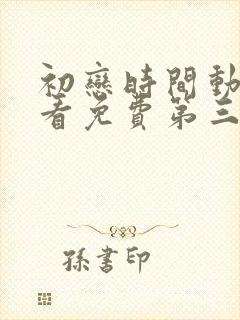 初戀時間動
看免費第三
孫書印